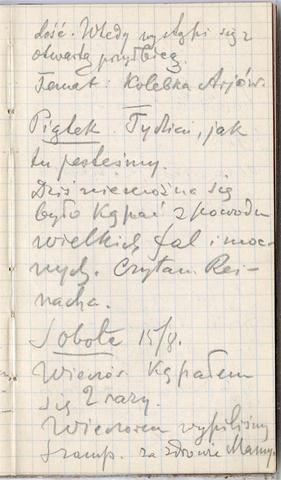 dość. Wtedy wystąpi się z
otwartą przyłbicą.
Temat: Kolebka Arjów.
Piątek. Tydzień, jak
tu jesteśmy.
Dziś nie można się
było kąpać z powodu
wielkich fal i moc-
nych. Czytam Rei-
nacha.
Sobota 15/8.
Wieczór. Kąpałem
się 2 razy.
Wieczorem wypiliśmy
szamp. za zdrowie Mamy.